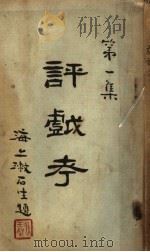 第一集
評戯考
海上漱石生題